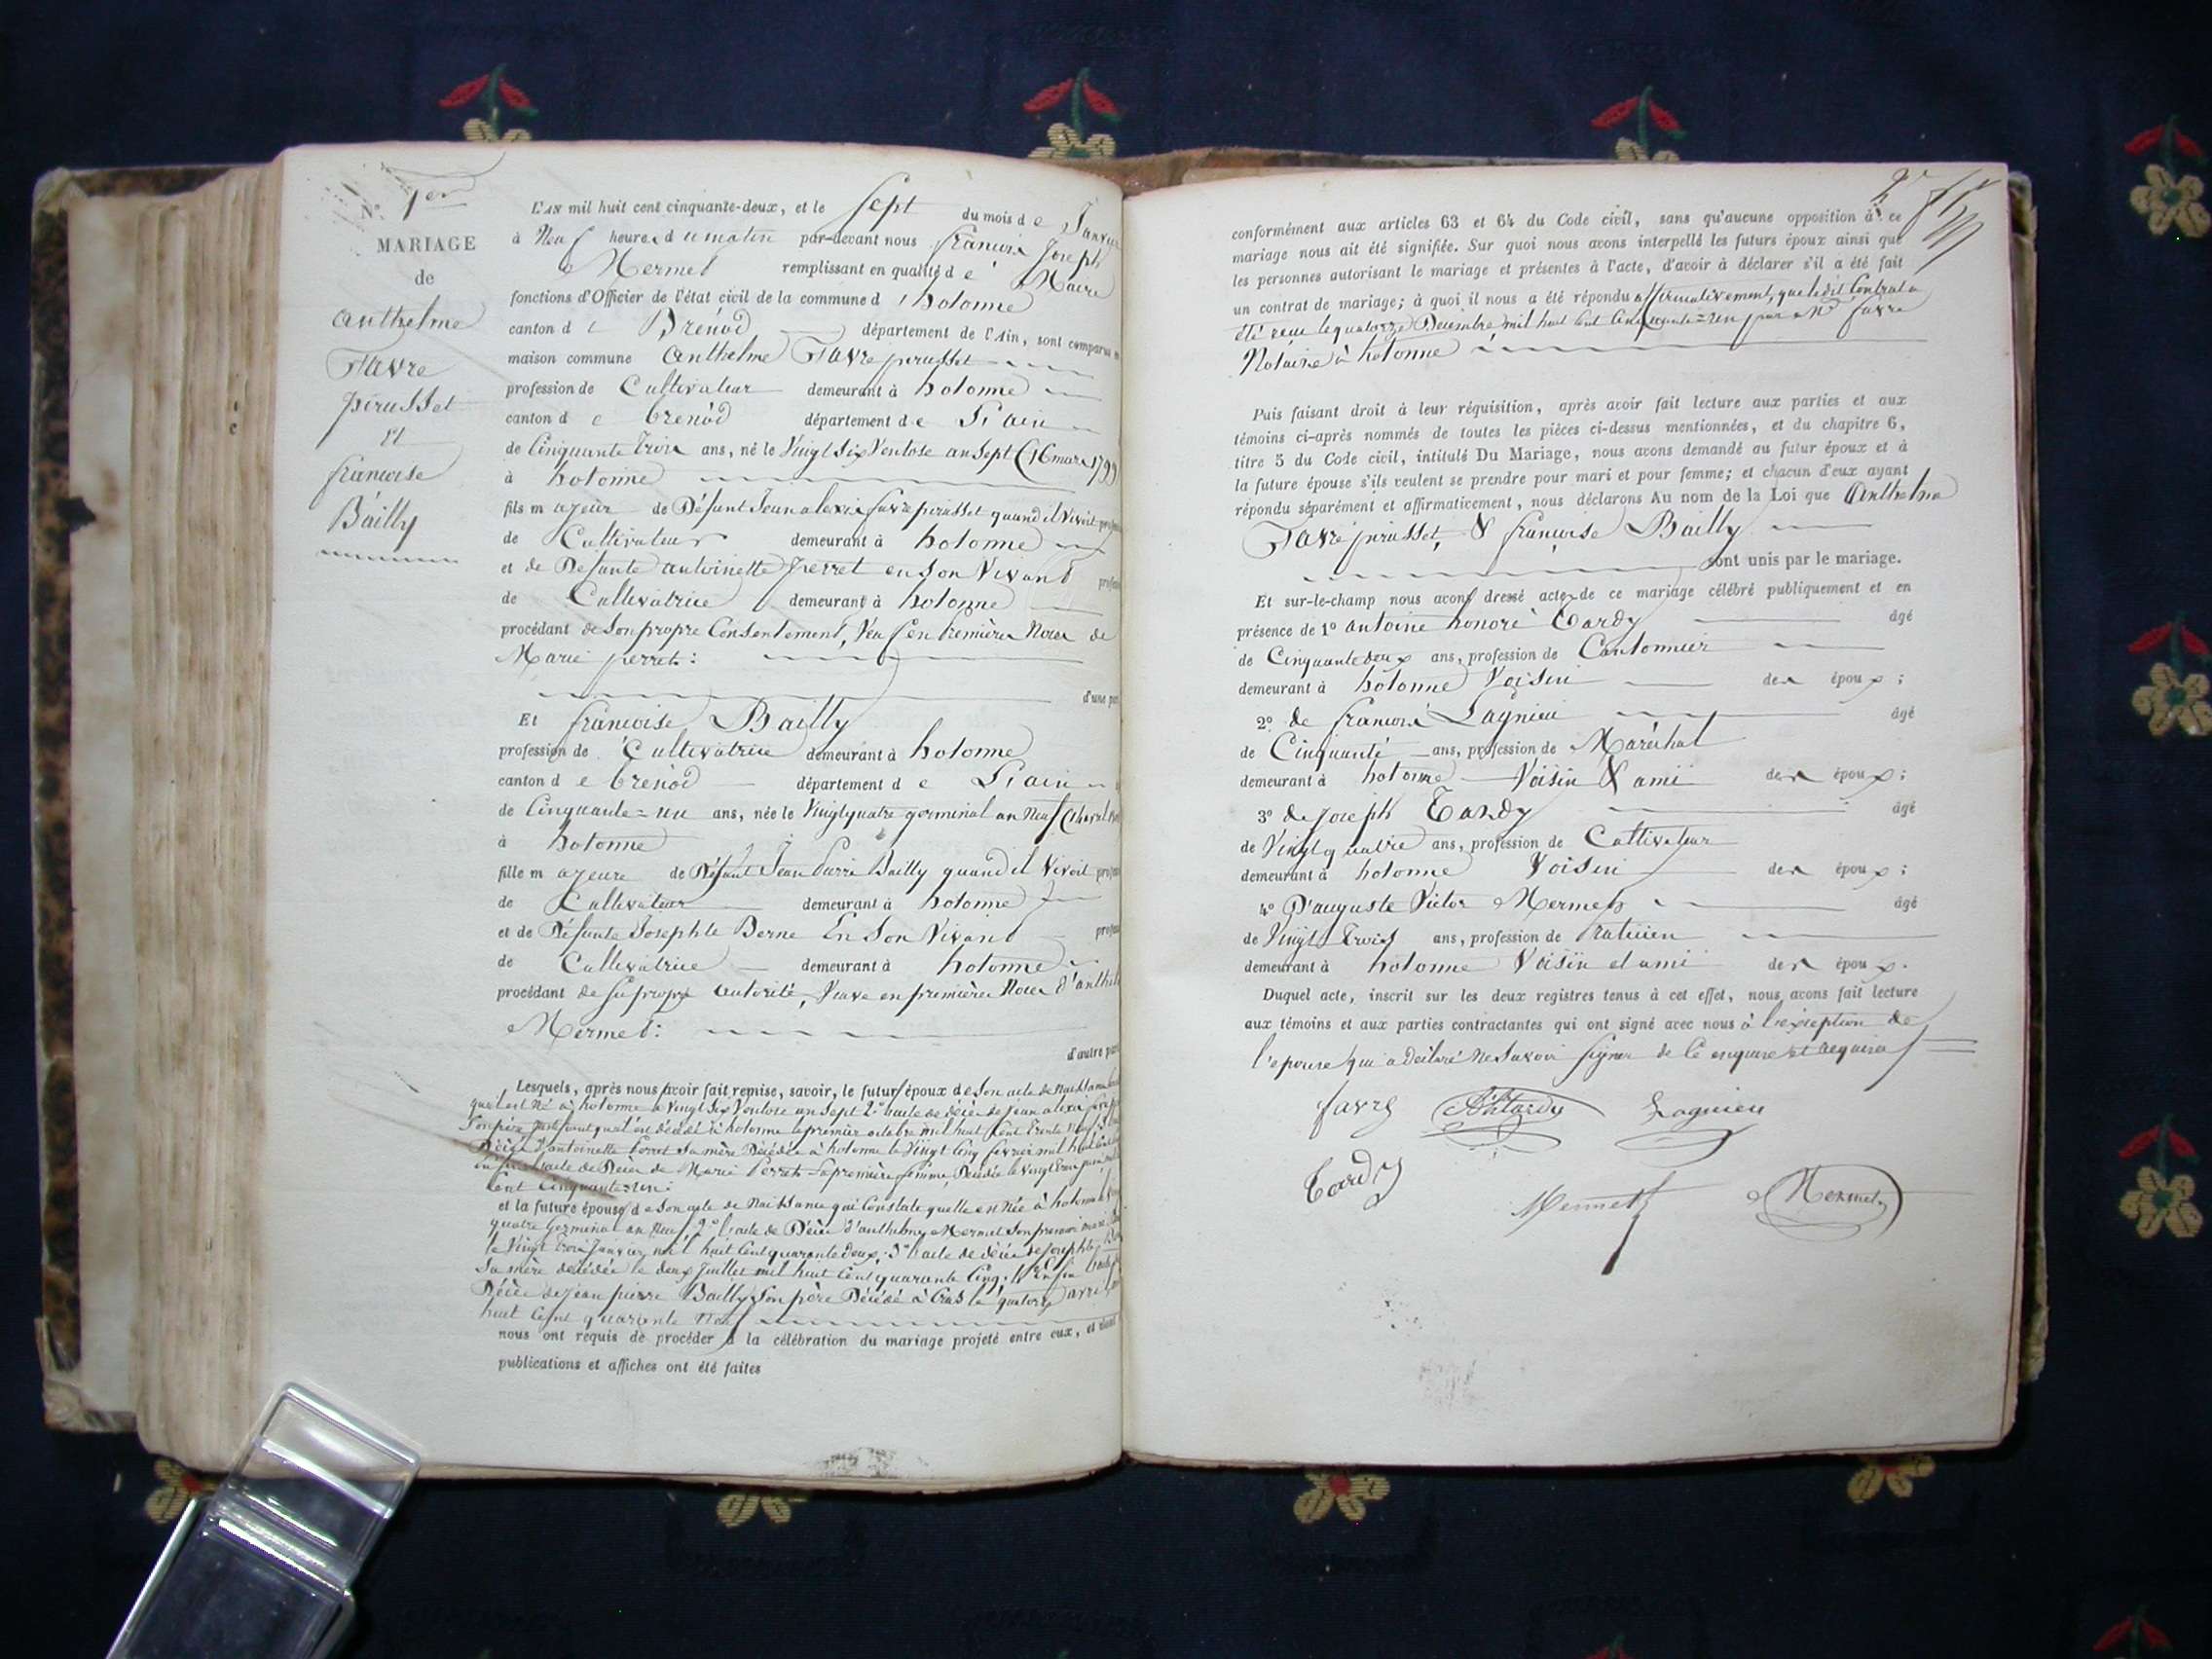 N° 1er
MARIAGE
de
anthelme
Favre
pirusset
Et
francoise
Bailly
L'AN mil huit cent cinquante-deux, et le Sept du mois de Janvier
à Neuf heures du matin par-devant nous francois Joseph
Mermet remplissant en qualité de Maire
fonctions d'Officier de l'état civil de la commune d'hotonne
canton de Brénod département de l'Ain, sont comparus
maison commune anthelme Favre pirusset
profession de Cultivateur demeurant à hotonne
canton de brénod département de L'ain
de Cinquante Trois ans, né le Vingt Six Ventose an Sept (16 mars 1799
à hotonne
fils majeur de Défunt Jean alexis favre pirusset quand il Vivoit
de Cultivateur demeurant à hotonne
et de Defunte antoinette Perret en son Vivant
de Cultivatrice demeurant à hotonne
procédant de Son propre Consentement, Veuf en premières Noces de
Marie perret:
d'une part
Et francoise Bailly
profession de Cultivatrice demeurant à hotonne
canton de brénod département de L'ain
de Cinquante=un ans, née le Vingt quatre germinal an Neuf
à hotonne
fille majeure de Défunt Jean Pierre Bailly quand il Vivoit
de Cultivateur demeurant à hotonne
et de Défunte Josephte Berne En Son Vivant
de Cultivatrice demeurant à hotonne
procédant de sa propre autorité, Veuve en premières Noces d'anthelme
Mermet:
d'autre part
Lesquels, après nous avoir fait remise, savoir, le futur époux de Son acte de Naissance
qu'il est Né à hotonne le Vingt Six Ventose an Sept 2° l'acte de décès de jean alexis
Son père qu'il est décédé à hotonne le premier octobre mil huit Cent Trente
Décès d'antoinette Perret Sa mère Décédée à hotonne le Vingt Cinq fevrier mil huit
l'acte de Décès de Marie Perret Sa première femme, Décédée le Vingt
Cent Cinquante=un:
et la future épouse de Son acte de Naissance qui Constate quelle est Née à hotonne le
quatre Germinal an Neuf, 2° l'acte de Décès d'anthelme Mermet Son premier mari
le Vingt Trois Janvier mil huit Cent quarante deux; 3° l'acte de décès de Josephte
Sa mère décédée le deux Juillet mil huit Cent quarante Cinq, Enfin
Décès de jean pierre Bailly Son père Décédé à le quatorze avril
huit Cent quarante Neuf
nous ont requis de procéder à la célébration du mariage projeté entre eux, et
publications et affiches ont été faites
conformément aux articles 63 et 64 du Code civil, sans qu'aucune opposition à ce
mariage nous ait été signifiée. Sur quoi nous avons interpellé les futurs époux ainsi que
les personnes autorisant le mariage et présentes à l'acte, d'avoir à déclarer s'il a été fait
un contrat de mariage; à quoi il nous a été répondu affirmativement, que le dit Contrat a
été reçu le quatorze Decembre mil huit Cent Cinquante=un par Me favre
Notaire à hotonne
Puis faisant droit à leur réquisition, après avoir fait lecture aux parties et aux
témoins ci-après nommés de toutes les pièces ci-dessus mentionnées, et du chapitre 6,
titre 5 du Code civil, intitulé Du Mariage, nous avons demandé au futur époux et à
la future épouse s'ils veulent se prendre pour mari et pour femme; et chacun d'eux ayant
répondu séparément et affirmativement, nous déclarons Au nom de la Loi que Anthelme
Favre pirusset, & françoise Bailly
sont unis par le mariage.
Et sur-le-champ nous avons dressé acte de ce mariage célébré publiquement et en
présence de 1° antoine honoré Tardy âgé
de Cinquante deux ans, profession de Cantonnier
demeurant à hotonne Voisin des époux;
2° de francois Lagnieu âgé
de Cinquante ans, profession de Maréchal
demeurant à hotonne Voisin & ami des époux;
3° de joseph Tardy âgé
de Vingt quatre ans, profession de Cultivateur
demeurant à hotonne Voisin des époux;
4° D'auguste Victor Mermet âgé
de Vingt Trois ans, profession de Praticien
demeurant à hotonne Voisin et ami des époux.
Duquel acte, inscrit sur les deux registres tenus à cet effet, nous avons fait lecture
aux témoins et aux parties contractantes qui ont signé avec nous à l'exception de
l'epouse qui a Déclaré ne Savoir signer de Ce enquise et requise
favre AhTardy Lagnieu
Tardy
Mermet Mermet